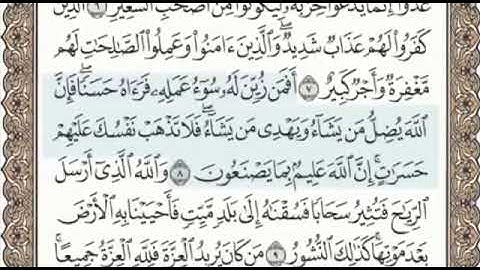 عَدُوًّا إِنَّمَا يَدْعُوا۟ حِزْبَهُۥ لِيَكُونُوا۟ مِنْ أَصْحَٰبِ ٱلسَّعِيرِ ٦ ٱلَّذِينَ
كَفَرُوا۟ لَهُمْ عَذَابٌ شَدِيدٌ ۖ وَٱلَّذِينَ ءَامَنُوا۟ وَعَمِلُوا۟ ٱلصَّٰلِحَٰتِ لَهُم
مَّغْفِرَةٌ وَأَجْرٌ كَبِيرٌ ٧ أَفَمَن زُيِّنَ لَهُۥ سُوٓءُ عَمَلِهِۦ فَرَءَاهُ حَسَنًا ۖ فَإِنَّ
ٱللَّهَ يُضِلُّ مَن يَشَآءُ وَيَهْدِى مَن يَشَآءُ ۖ فَلَا تَذْهَبْ نَفْسُكَ عَلَيْهِمْ
حَسَرَٰتٍ ۚ إِنَّ ٱللَّهَ عَلِيمٌۢ بِمَا يَصْنَعُونَ ٨ وَٱللَّهُ ٱلَّذِىٓ أَرْسَلَ
ٱلرِّيَٰحَ فَتُثِيرُ سَحَابًا فَسُقْنَٰهُ إِلَىٰ بَلَدٍ مَّيِّتٍ فَأَحْيَيْنَا بِهِ ٱلْأَرْضَ
بَعْدَ مَوْتِهَا ۚ كَذَٰلِكَ ٱلنُّشُورُ ٩ مَن كَانَ يُرِيدُ ٱلْعِزَّةَ فَلِلَّهِ ٱلْعِزَّةُ جَمِيعًا ۚ